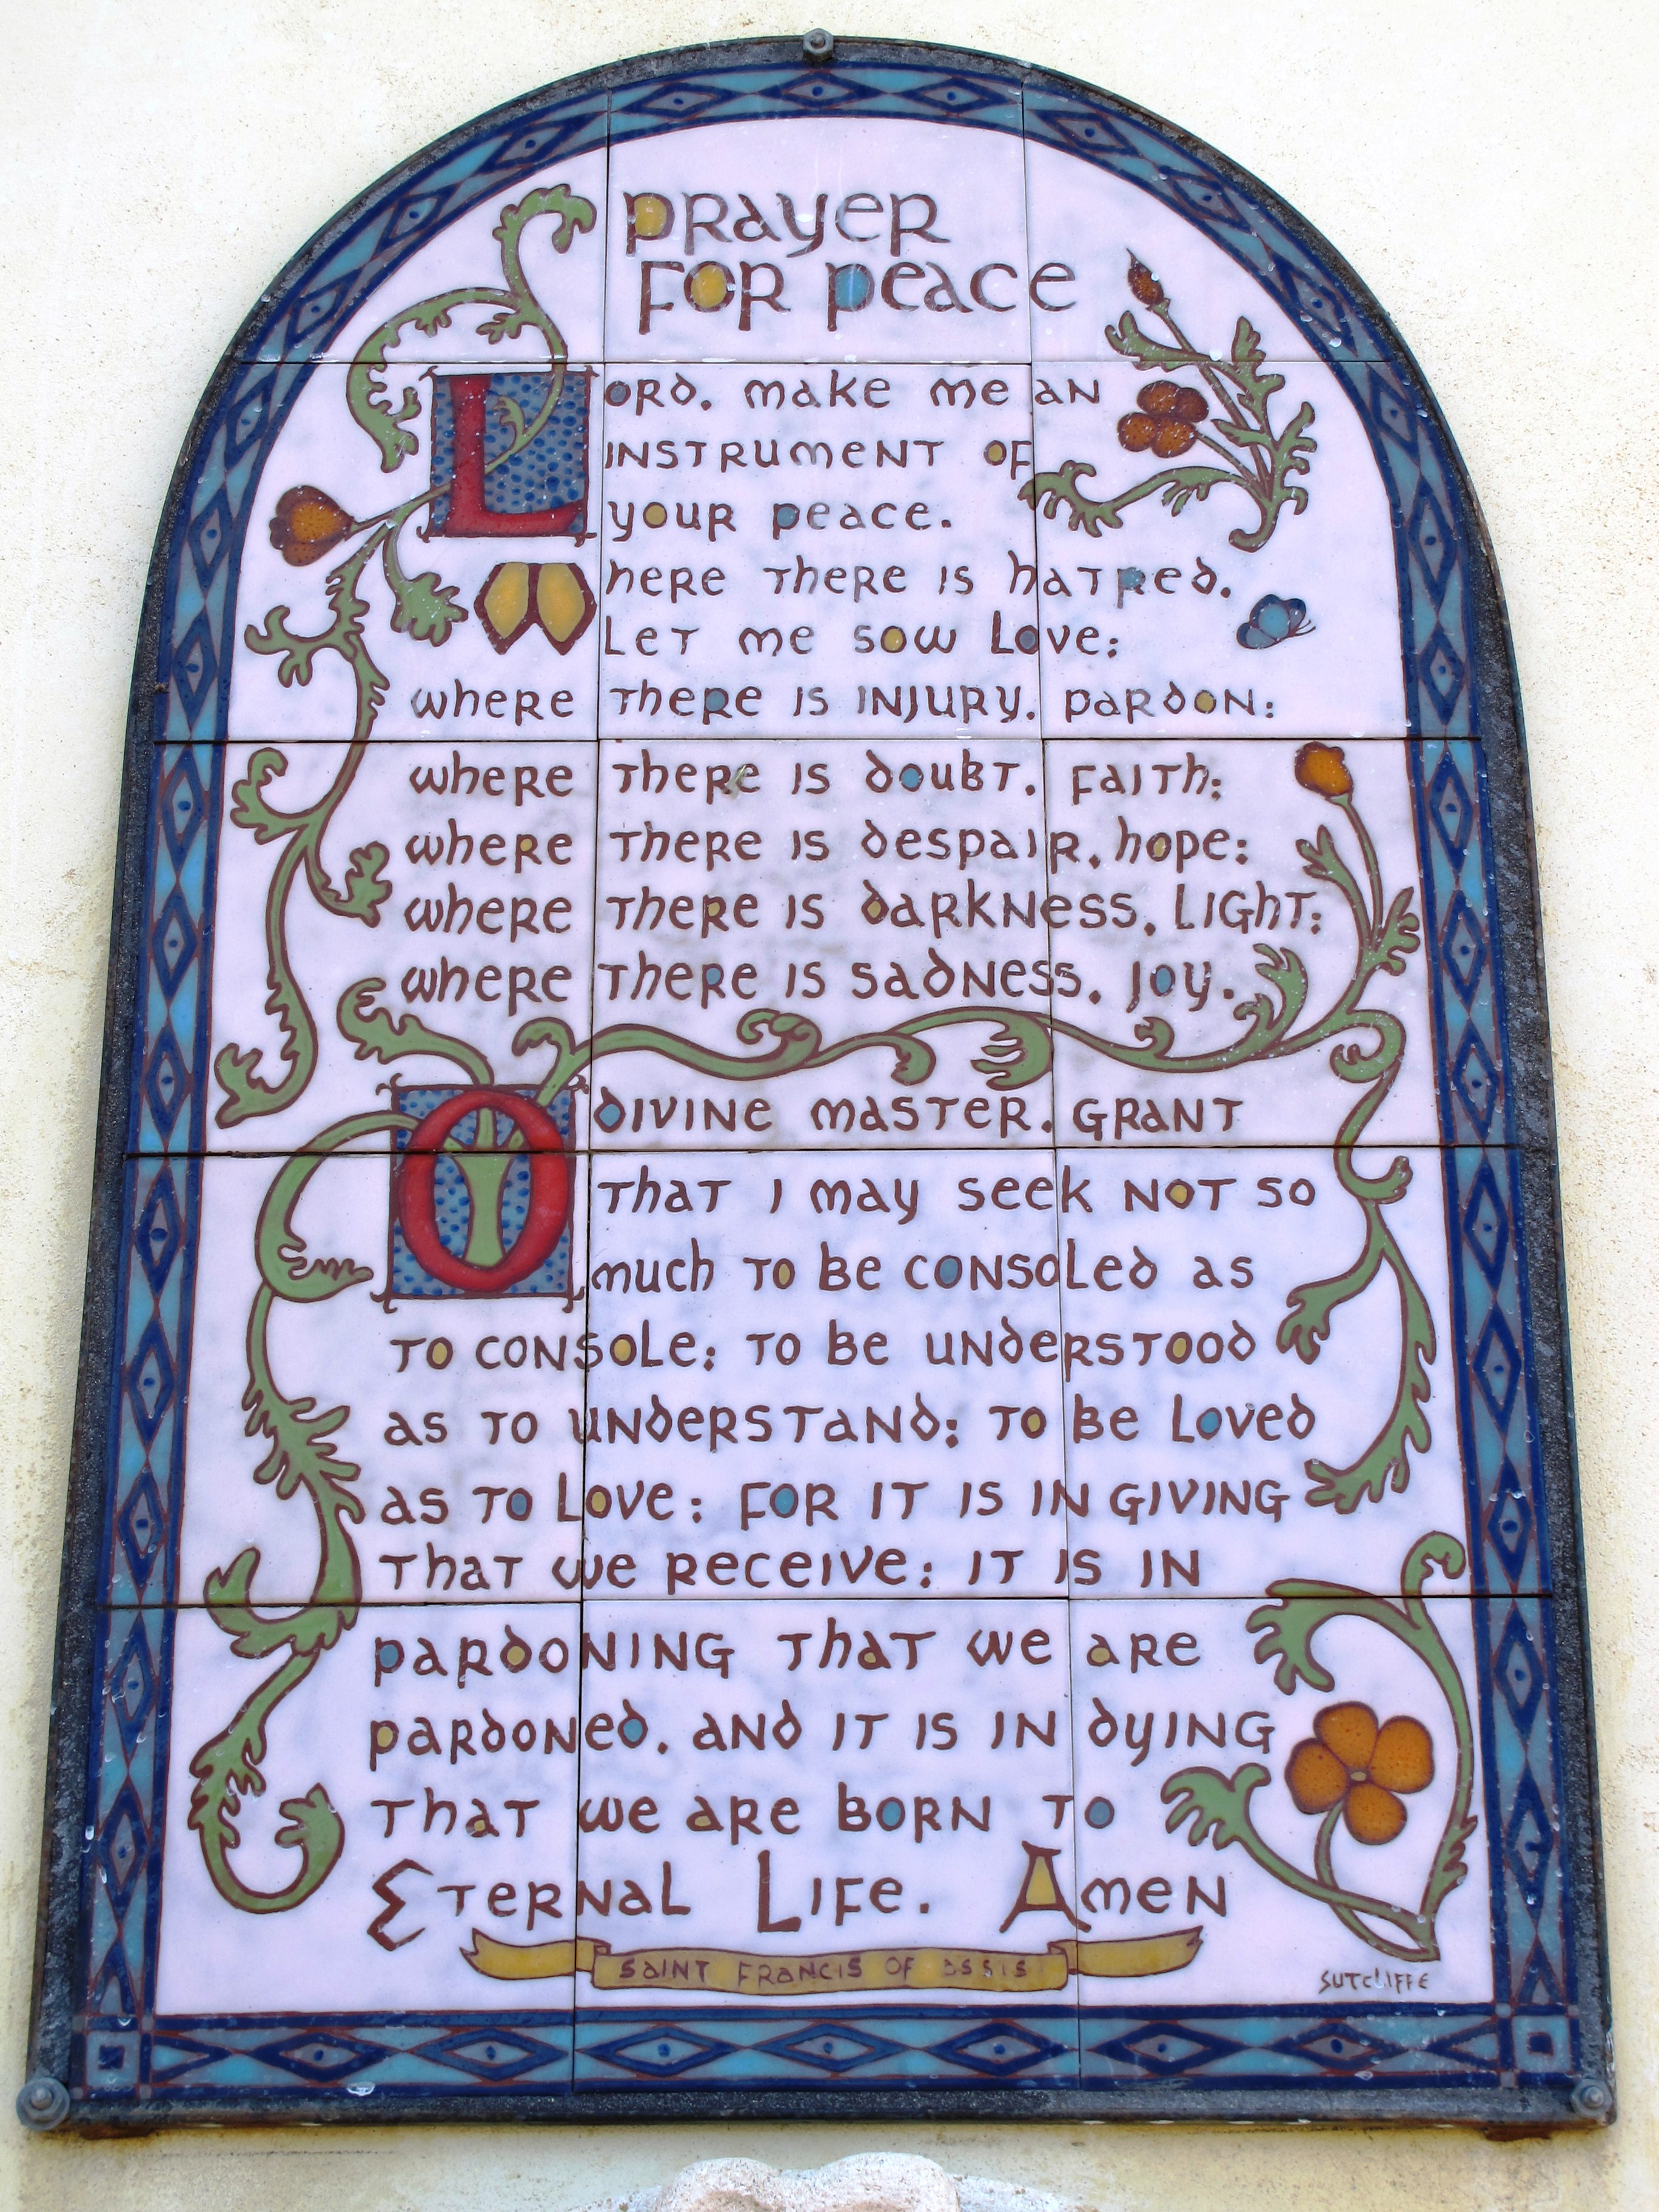 PRAYER
FOR PEACE
LORD. MAKE ME AN
INSTRUMENT OF
YOUR PEACE.
WHERE THERE IS HATRED.
LET ME SOW LOVE:
WHERE THERE IS INJURY. PARDON:
WHERE THERE IS DOUBT. FAITH:
WHERE THERE IS DESPAIR. HOPE:
WHERE THERE IS DARKNESS. LIGHT:
WHERE THERE IS SADNESS. JOY.
O DIVINE MASTER. GRANT
THAT I MAY SEEK NOT SO
MUCH TO BE CONSOLED AS
TO CONSOLE: TO BE UNDERSTOOD
AS TO UNDERSTAND: TO BE LOVED
AS TO LOVE: FOR IT IS IN GIVING
THAT WE RECEIVE: IT IS IN
PARDONING THAT WE ARE
PARDONED. AND IT IS IN DYING
THAT WE ARE BORN TO
ETERNAL LIFE. AMEN
SAINT FRANCIS OF ASSISI
SUTCLIFFE